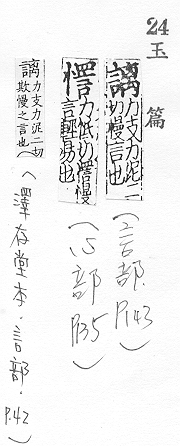 24
玉篇
謧力支力泥二
切慢言也
(言部.P.143)
力低切㦒慢
言輕易也
(心部P.135)
謧力支力泥二切
欺慢之言也
(澤存堂本.言部.P.42)